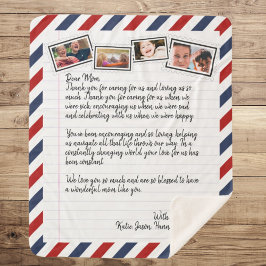 Dear Mom,
Thank you for caring for us and loving us so
much. Thank you for caring for us when we
were sick, encouraging us when we were sad
and celebrating with us when we were happy.
You've been encouraging and so loving helping
us navigate all that life throws our way. In a
constantly changing world, your love for us has
been constant.
We love you so much and are so blessed to have
a wonderful mom like you.
With
Katie, Jason, Hann